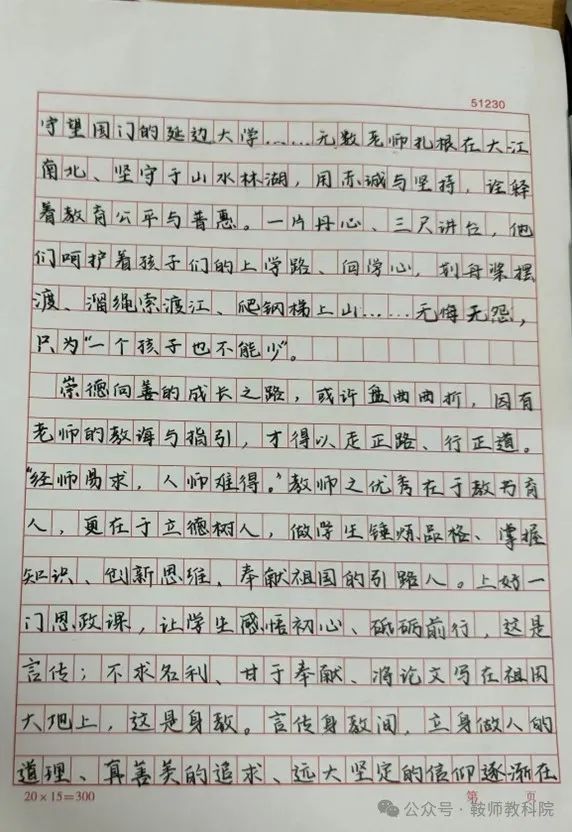 51230
守望国门的延边大学……无数老师扎根在大江
南北、坚守于山水林湖，用赤诚与坚持，诠释
着教育公平与普惠。一片丹心、三尺讲台，他
们呵护着孩子们的上学路、向学心，划舟桨摆
渡、溜绳索渡江、爬钢梯上山……无悔无怨，
只为“一个孩子也不能少”。
崇德向善的成长之路，或许盘曲曲折，因有
老师的教诲与指引，才得以走正路、行正道。
“经师易求，人师难得。”教师之优秀在于教书育
人，更在于立德树人，做学生锤炼品格、掌握
知识、创新思维、奉献祖国的引路人。上好一
门思政课，让学生感悟初心、砥砺前行，这是
言传；不求名利、甘于奉献、将论文写在祖国
大地上，这是身教。言传身教间，立身做人的
道理、真善美的追求、远大坚定的信仰逐渐在
20×15=300 第 页
公众号·鞍师教科院